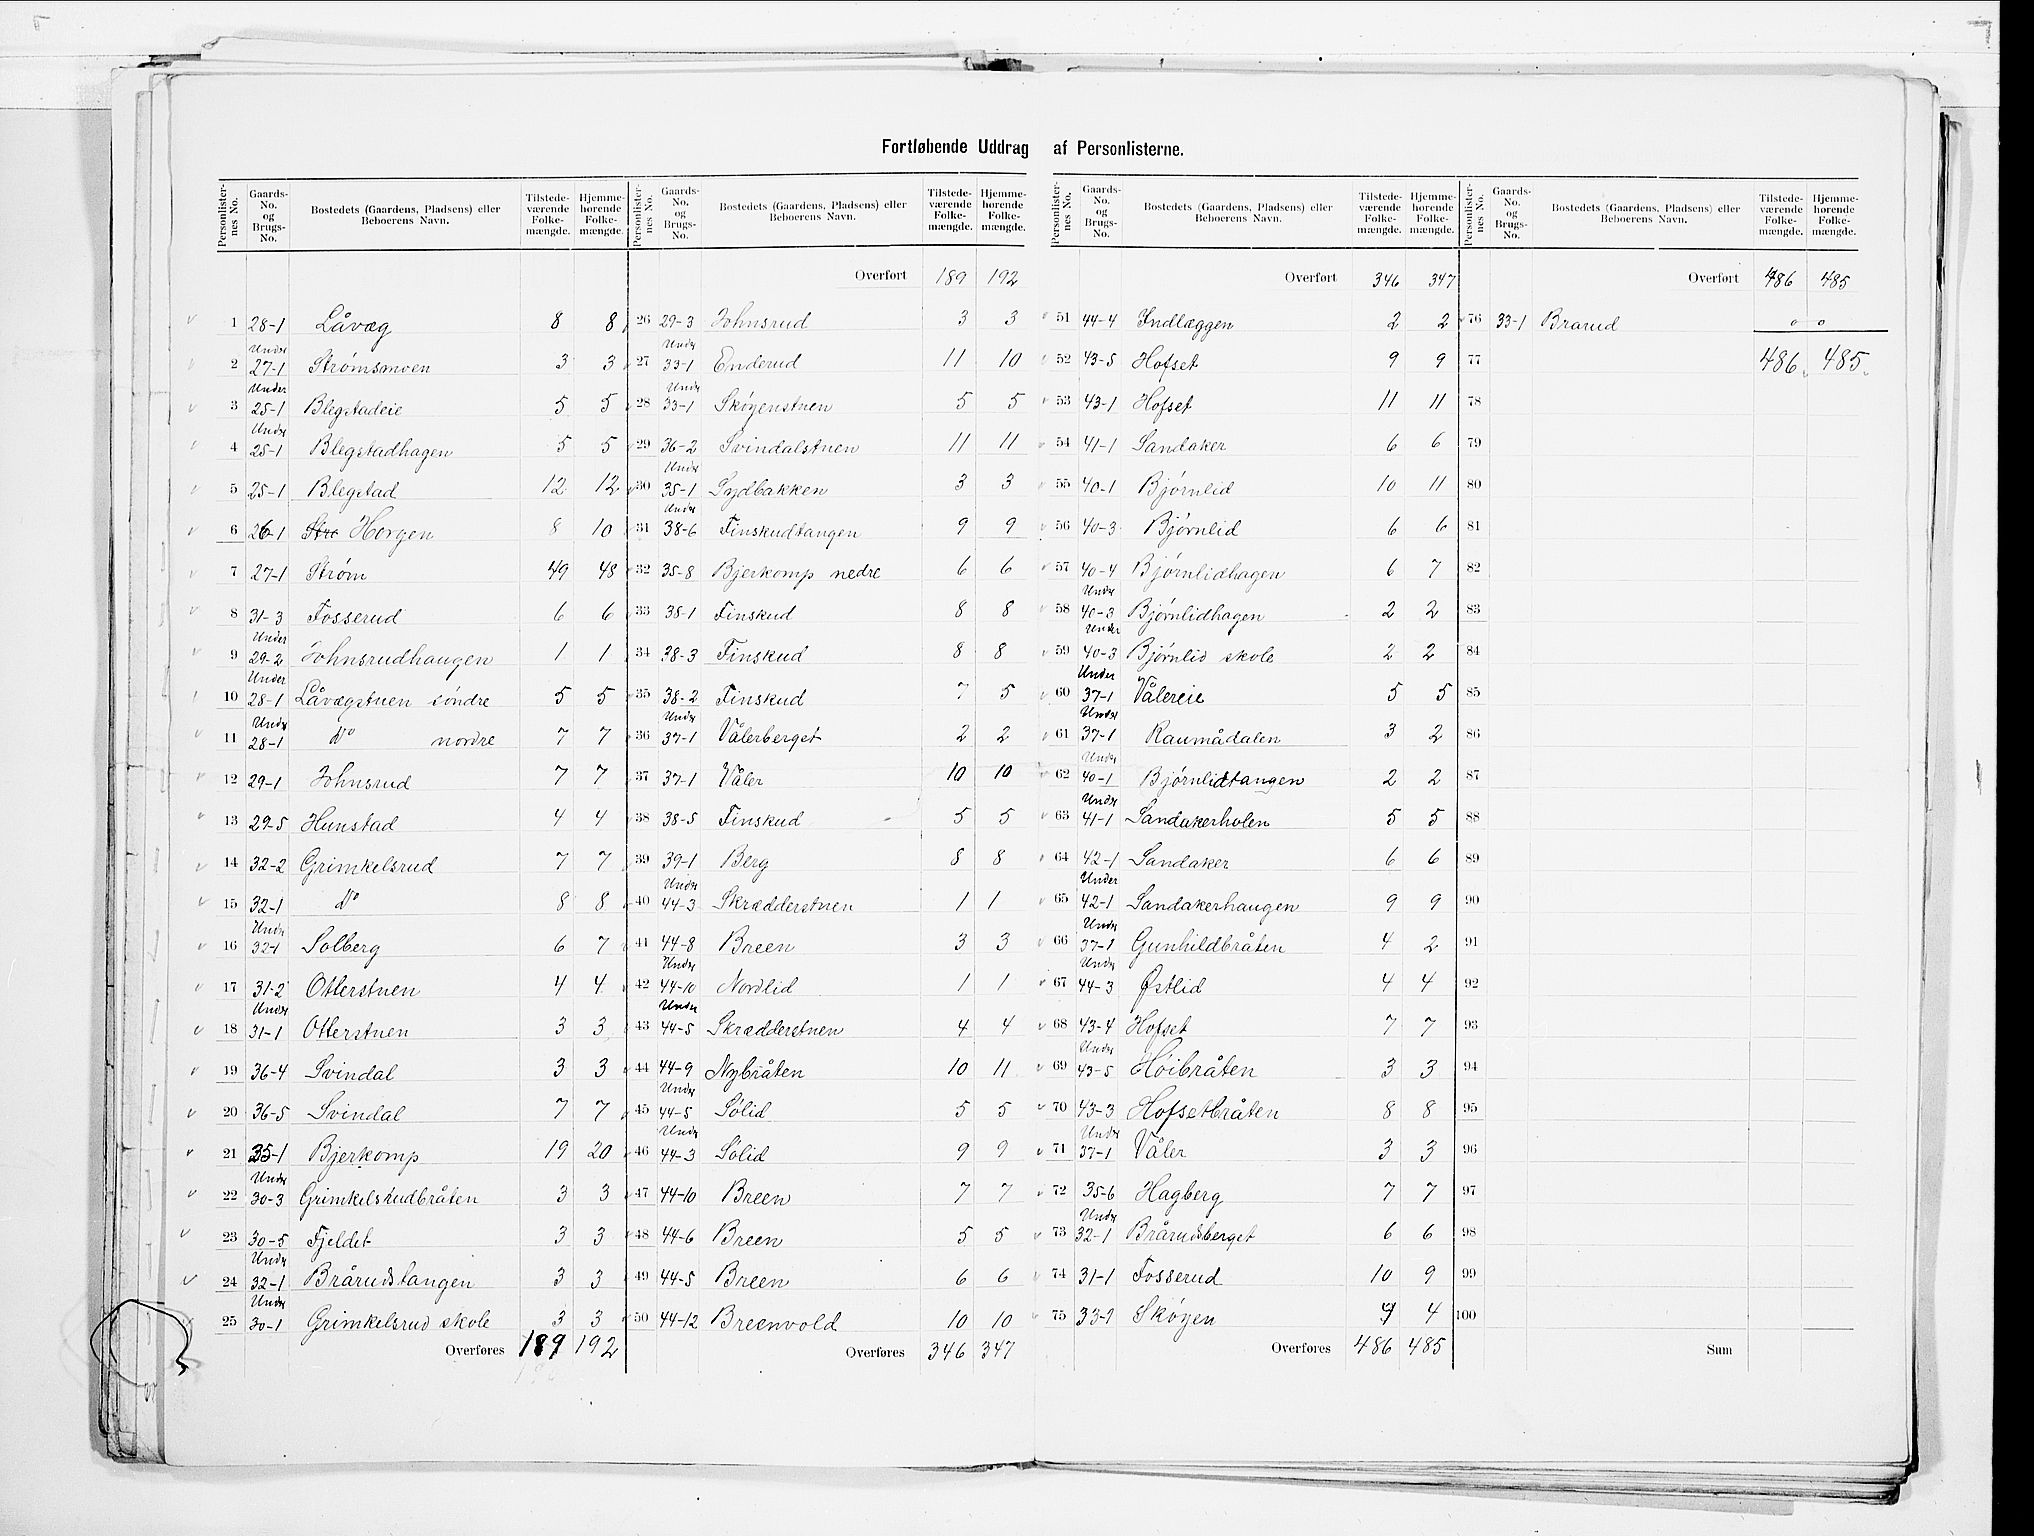 Fortløbende Uddrag af Personlisterne.
Personlister-nes No. | Gaards-No. og Brugs-No. | Bostedets (Gaardens, Pladsens) eller Beboerens Navn. | Tilstede-værende Folke-mængde. | Hjemme-hørende Folke-mængde.
1 28-1 Låvæg 8 8
2 Under 27-1 Strømsmoen 3 3
3 Under 25-1 Blegstadeie 5 5
4 Under 25-1 Blegstadhagen 5 5
5 25-1 Blegstad 12 12
6 26-1 Horgen 8 10
7 27-1 Strøm 49 48
8 31-3 Fosserud 6 6
9 Under 29-2 Johnsrudhaugen 1 1
10 Under 28-1 Låvægstuen søndre 5 5
11 Under 28-1 Do nordre 7 7
12 29-1 Johnsrud 7 7
13 29-5 Hunstad 4 4
14 32-2 Grimkelsrud 7 7
15 32-1 Do 8 8
16 Under 32-1 Solberg 6 7
17 31-2 Otterstuen 4 4
18 Under 31-1 Otterstuen 3 3
19 36-4 Svindal 3 3
20 36-5 Svindal 7 7
21 35-1 Bjerkomp 19 20
22 Under 30-3 Grimkelsrudbråten 3 3
23 30-5 Fjeldet 3 3
24 Under 32-1 Brårudstangen 3 3
25 Under 30-1 Grimkelsrud skole 3 3
Overføres 189 192
Personlister-nes No. | Gaards-No. og Brugs-No. | Bostedets (Gaardens, Pladsens) eller Beboerens Navn. | Tilstede-værende Folke-mængde. | Hjemme-hørende Folke-mængde.
Overført 189 192
26 29-3 Johnsrud 3 3
27 Under 33-1 Enderud 11 10
28 Under 33-1 Skøyenstuen 5 5
29 36-2 Svindalstuen 11 11
30 Under 35-1 Sydbakken 3 3
31 Under 38-6 Finskudtangen 9 9
32 35-8 Bjerkomp nedre 6 6
33 38-1 Finskud 8 8
34 38-3 Finskud 8 8
35 38-2 Finskud 7 5
36 Under 37-1 Vålerberget 2 2
37 37-1 Våler 10 10
38 38-5 Finskud 5 5
39 39-1 Berg 8 8
40 Under 44-3 Skrædderstuen 1 1
41 44-8 Breen 3 3
42 Under 44-10 Nordlid 1 1
43 Under 44-5 Skrædderstuen 4 4
44 44-9 Nybråten 10 11
45 Under 44-5 Sølid 5 5
46 Under 44-3 Sølid 9 9
47 44-10 Breen 7 7
48 44-6 Breen 5 5
49 44-5 Breen 6 6
50 44-12 Breenvold 10 10
Overføres 346 347
Personlister-nes No. | Gaards-No. og Brugs-No. | Bostedets (Gaardens, Pladsens) eller Beboerens Navn. | Tilstede-værende Folke-mængde. | Hjemme-hørende Folke-mængde.
Overført 346 347
51 44-4 Indlæggen 2 2
52 43-5 Hofset 9 9
53 43-1 Hofset 11 11
54 41-1 Sandaker 6 6
55 40-1 Bjørnlid 10 11
56 40-3 Bjørnlid 6 6
57 40-4 Bjørnlidhagen 6 7
58 Under 40-3 Bjørnlidhagen 2 2
59 Under 40-3 Bjørnlid skole 2 2
60 Under 37-1 Vålereie 5 5
61 Under 37-1 Raumådalen 3 2
62 Under 40-1 Bjørnlidtangen 2 2
63 Under 41-1 Sandakerholen 5 5
64 42-1 Sandaker 6 6
65 Under 42-1 Sandakerhaugen 9 9
66 Under 37-1 Gunhildbråten 4 2
67 Under 44-3 Østlid 4 4
68 43-4 Hofset 7 7
69 Under 43-5 Høibråten 3 3
70 43-3 Hofsetbråten 8 8
71 Under 37-1 Våler 3 3
72 35-6 Hagberg 7 7
73 Under 32-1 Brårudsberget 6 6
74 31-1 Fosserud 10 9
75 33-1 Skøyen 4
Overføres 486 485
Personlister-nes No. | Gaards-No. og Brugs-No. | Bostedets (Gaardens, Pladsens) eller Beboerens Navn. | Tilstede-værende Folke-mængde. | Hjemme-hørende Folke-mængde.
Overført 486 485
76 33-1 Brarud " "
77 486 485
78
79
80
81
82
83
84
85
86
87
88
89
90
91
92
93
94
95
96
97
98
99
100
Sum